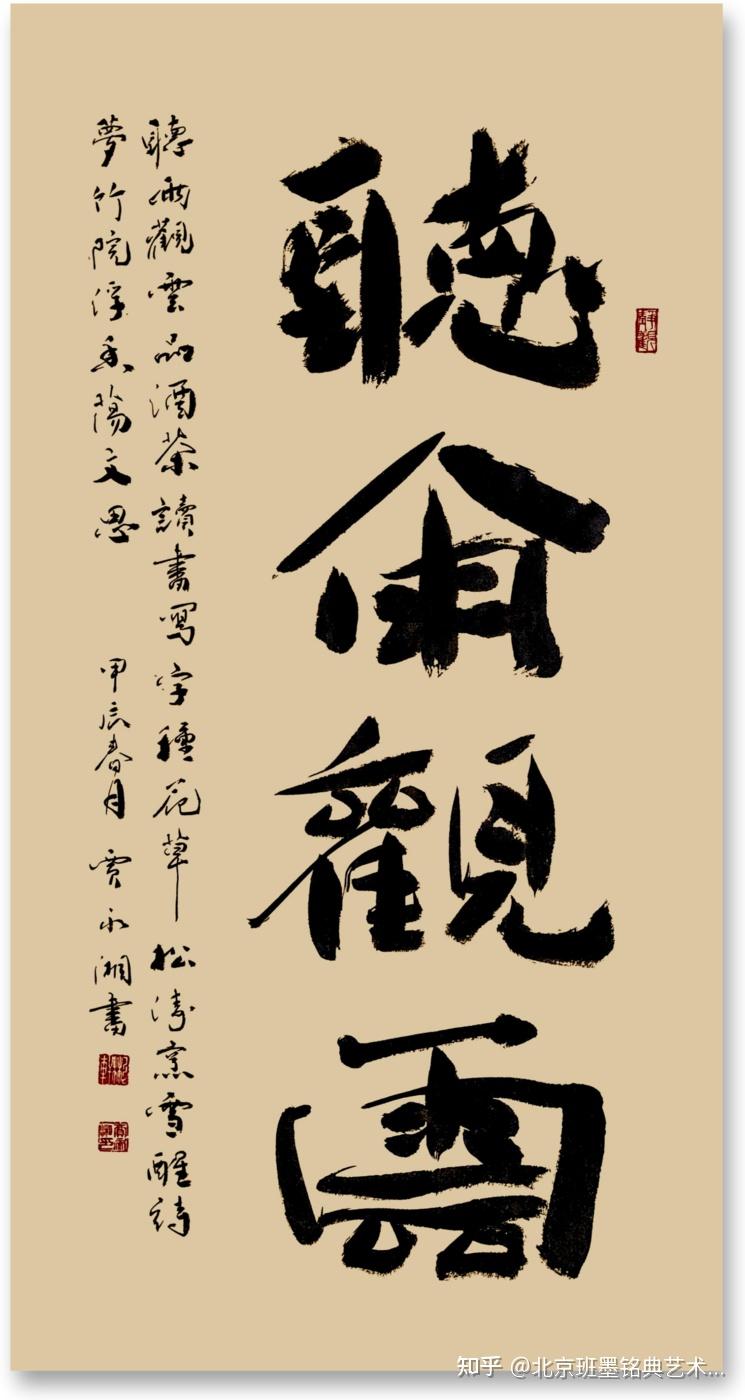 聽雨觀雲
聽雨觀雲品酒茶讀書寫字種花草松濤烹雪醒詩
夢竹院浮香蕩文思
甲辰春月 賈永湘書
知乎 @北京班墨铭典艺术...